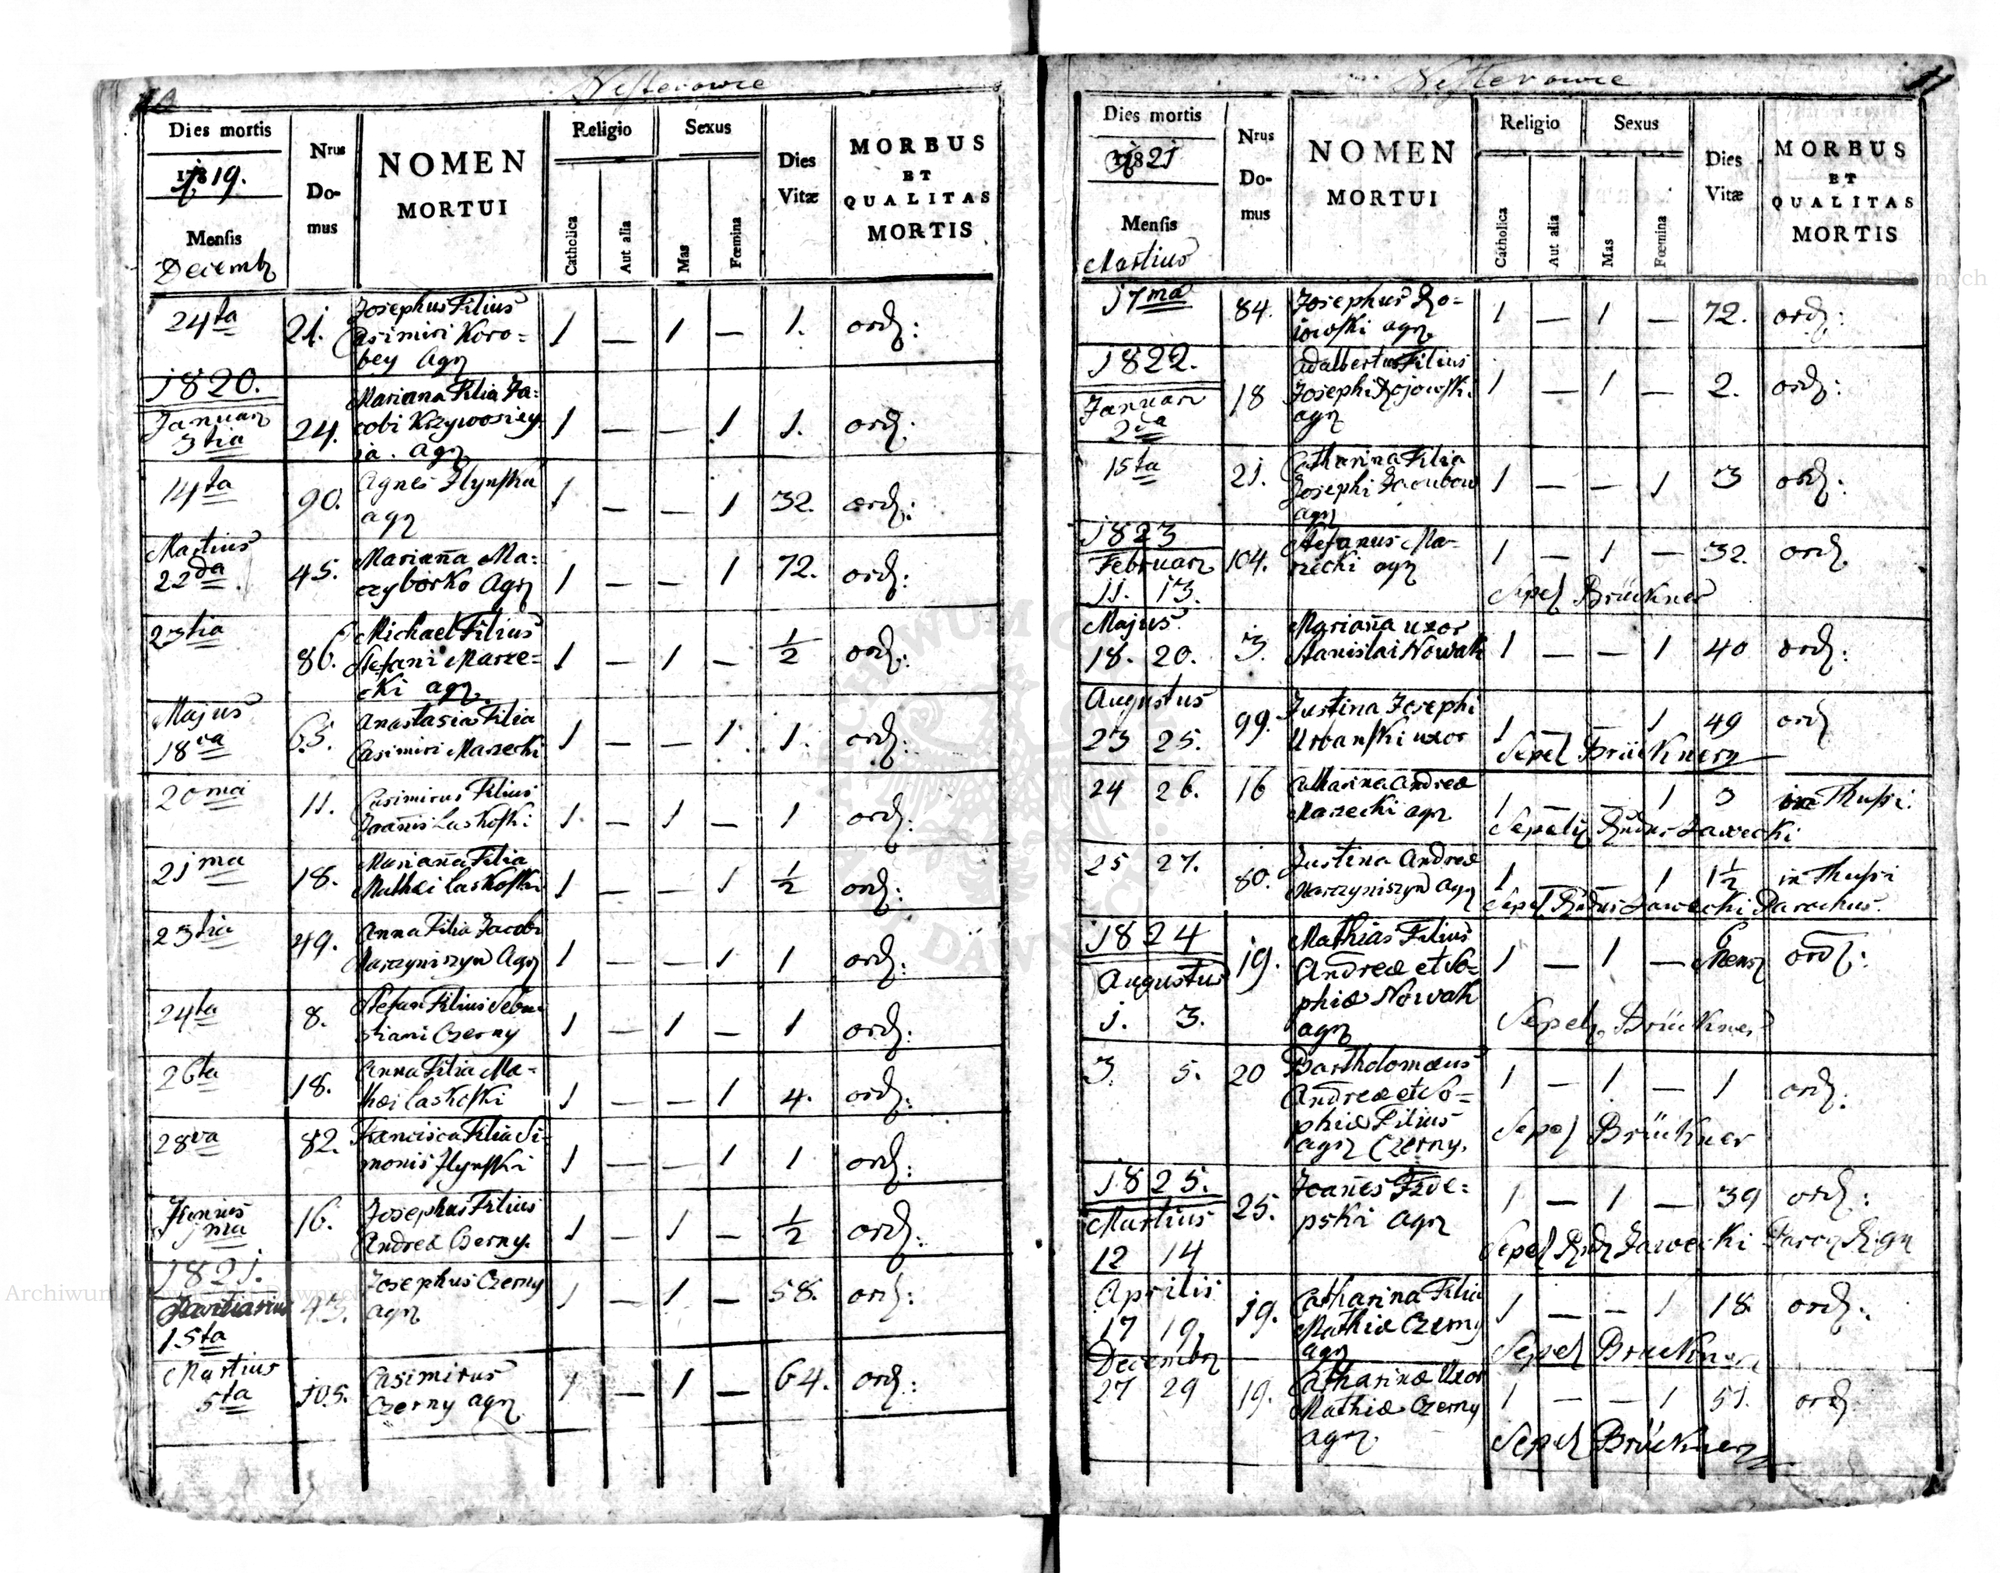 10
Nesterowce
Dies mortis
1819.
Mensis
Decembr
Nrus Domus
NOMEN
MORTUI
Religio
Catholica
Aut alia
Sexus
Mas
Fœmina
Dies Vitæ
MORBUS
ET
QUALITAS
MORTIS
24ta 21. Josephus Filius 1 — 1 — 1. ord:
Casimiri Koro=
bey Agr
1820.
Januar
3tia 24. Mariana Filia Ja= 1 — — 1 1. ord:
cobi
ia. agr
14ta 90. Agnes Ilynska 1 — — 1 32. ord:
agr
Martius
22da 45. Marianna Ma= 1 — — 1 72. ord:
czyborko Agr
23tia 86. Michael Filius 1 — 1 — 1/2 ord:
Stefani Marze=
cki agr
Majus
18va 65. Anastasia Filia 1 — — 1. 1. ord:
Casimiri Marzecki
20ma 11. Casimirus Filius 1. — 1 — 1 ord:
Joannis Laskoski
21ma 18. Marianna Filia 1 — — 1 1/2 ord:
Mathei Laskoski
23tia 49. Anna Filia Jacobi 1 — — 1 1 ord:
Marzyniszyn Agr
24ta 8. Stefan Filius Seba=
stiani Czerny 1 — 1 — 1 ord:
26ta 18. Anna Filia Ma= 1 — — 1 4. ord:
thei Laskoski
28va 82. Francisca Filia Si= 1 — — 1 1 ord:
monis Ilynski
Junius
1ma 16. Josephus Filius 1 — 1 — 1/2 ord:
Andreæ Czerny.
1821.
Januarius 43. Josephus Czerny 1 — 1 — 58. ord:
15ta agr
Martius
5ta 105. Casimirus 1 — 1 — 64. ord:
Czerny agr
11
Nesterowce
Dies mortis
1821
Mensis
Martius
Nrus Domus
NOMEN
MORTUI
Religio
Catholica
Aut alia
Sexus
Mas
Fœmina
Dies Vitæ
MORBUS
ET
QUALITAS
MORTIS
17ma 84. Josephus Ro= 1 — 1 — 72. ord:
jowski agr.
1822.
Januar
2da 18 Adalbertus Filius 1 — 1 — 2. ord:
Josephi Rojowski
agr
15ta 21. Catharina Filia 1 — — 1 3 ord:
Josephi Jacubow
agr
1823
Februar 104. Stefanus Ma= 1 — 1 — 32. ord
rzecki agr
11. 13. Sepel Brückner
Majus 3. Marianna uxor 1 — — 1 40 ord:
18. 20. Stanislai Nowak
Augustus 99. Justina Josephi 1 — — 1 49 ord
23 25. Urbanski uxor
Sepel Brückner
24 26. 16 Catharina Andreæ 1 — — 1 3 in Thussi.
Marzecki agr
Sepel Jawecki
25 27. 80. Justina Andreæ 1 — — 1 1 1/2 in Thussi
Marzyniszyn Agr
Sepel Jawecki Parochus.
1824
Augustus 19. Mathias Filius 1 — 1 — 6 Mens ord:
Andreæ et So=
phiæ Nowak
1. 3. agr Sepel. Brückner
3. 5. 20 Bartholomæus 1 — 1 — 1 ord:
Andreæ et So=
phiæ Filius
agr Czerny.
Sepel Brückner
1825.
Martius 25. Joannes 1 — 1 — 39 ord:
pski agr
12 14 Sepel Jawecki
Aprilis 19. Catharina Filia 1 — — 1 18 ord:
17 19 Mathiæ Czerny
agr Sepel Brückner
Decembr
27 29 19. Catharina Uxor 1 — — 1 51. ord
Mathiæ Czerny
agr. Sepel Brückner
Archiwum Główne Akt Dawnych